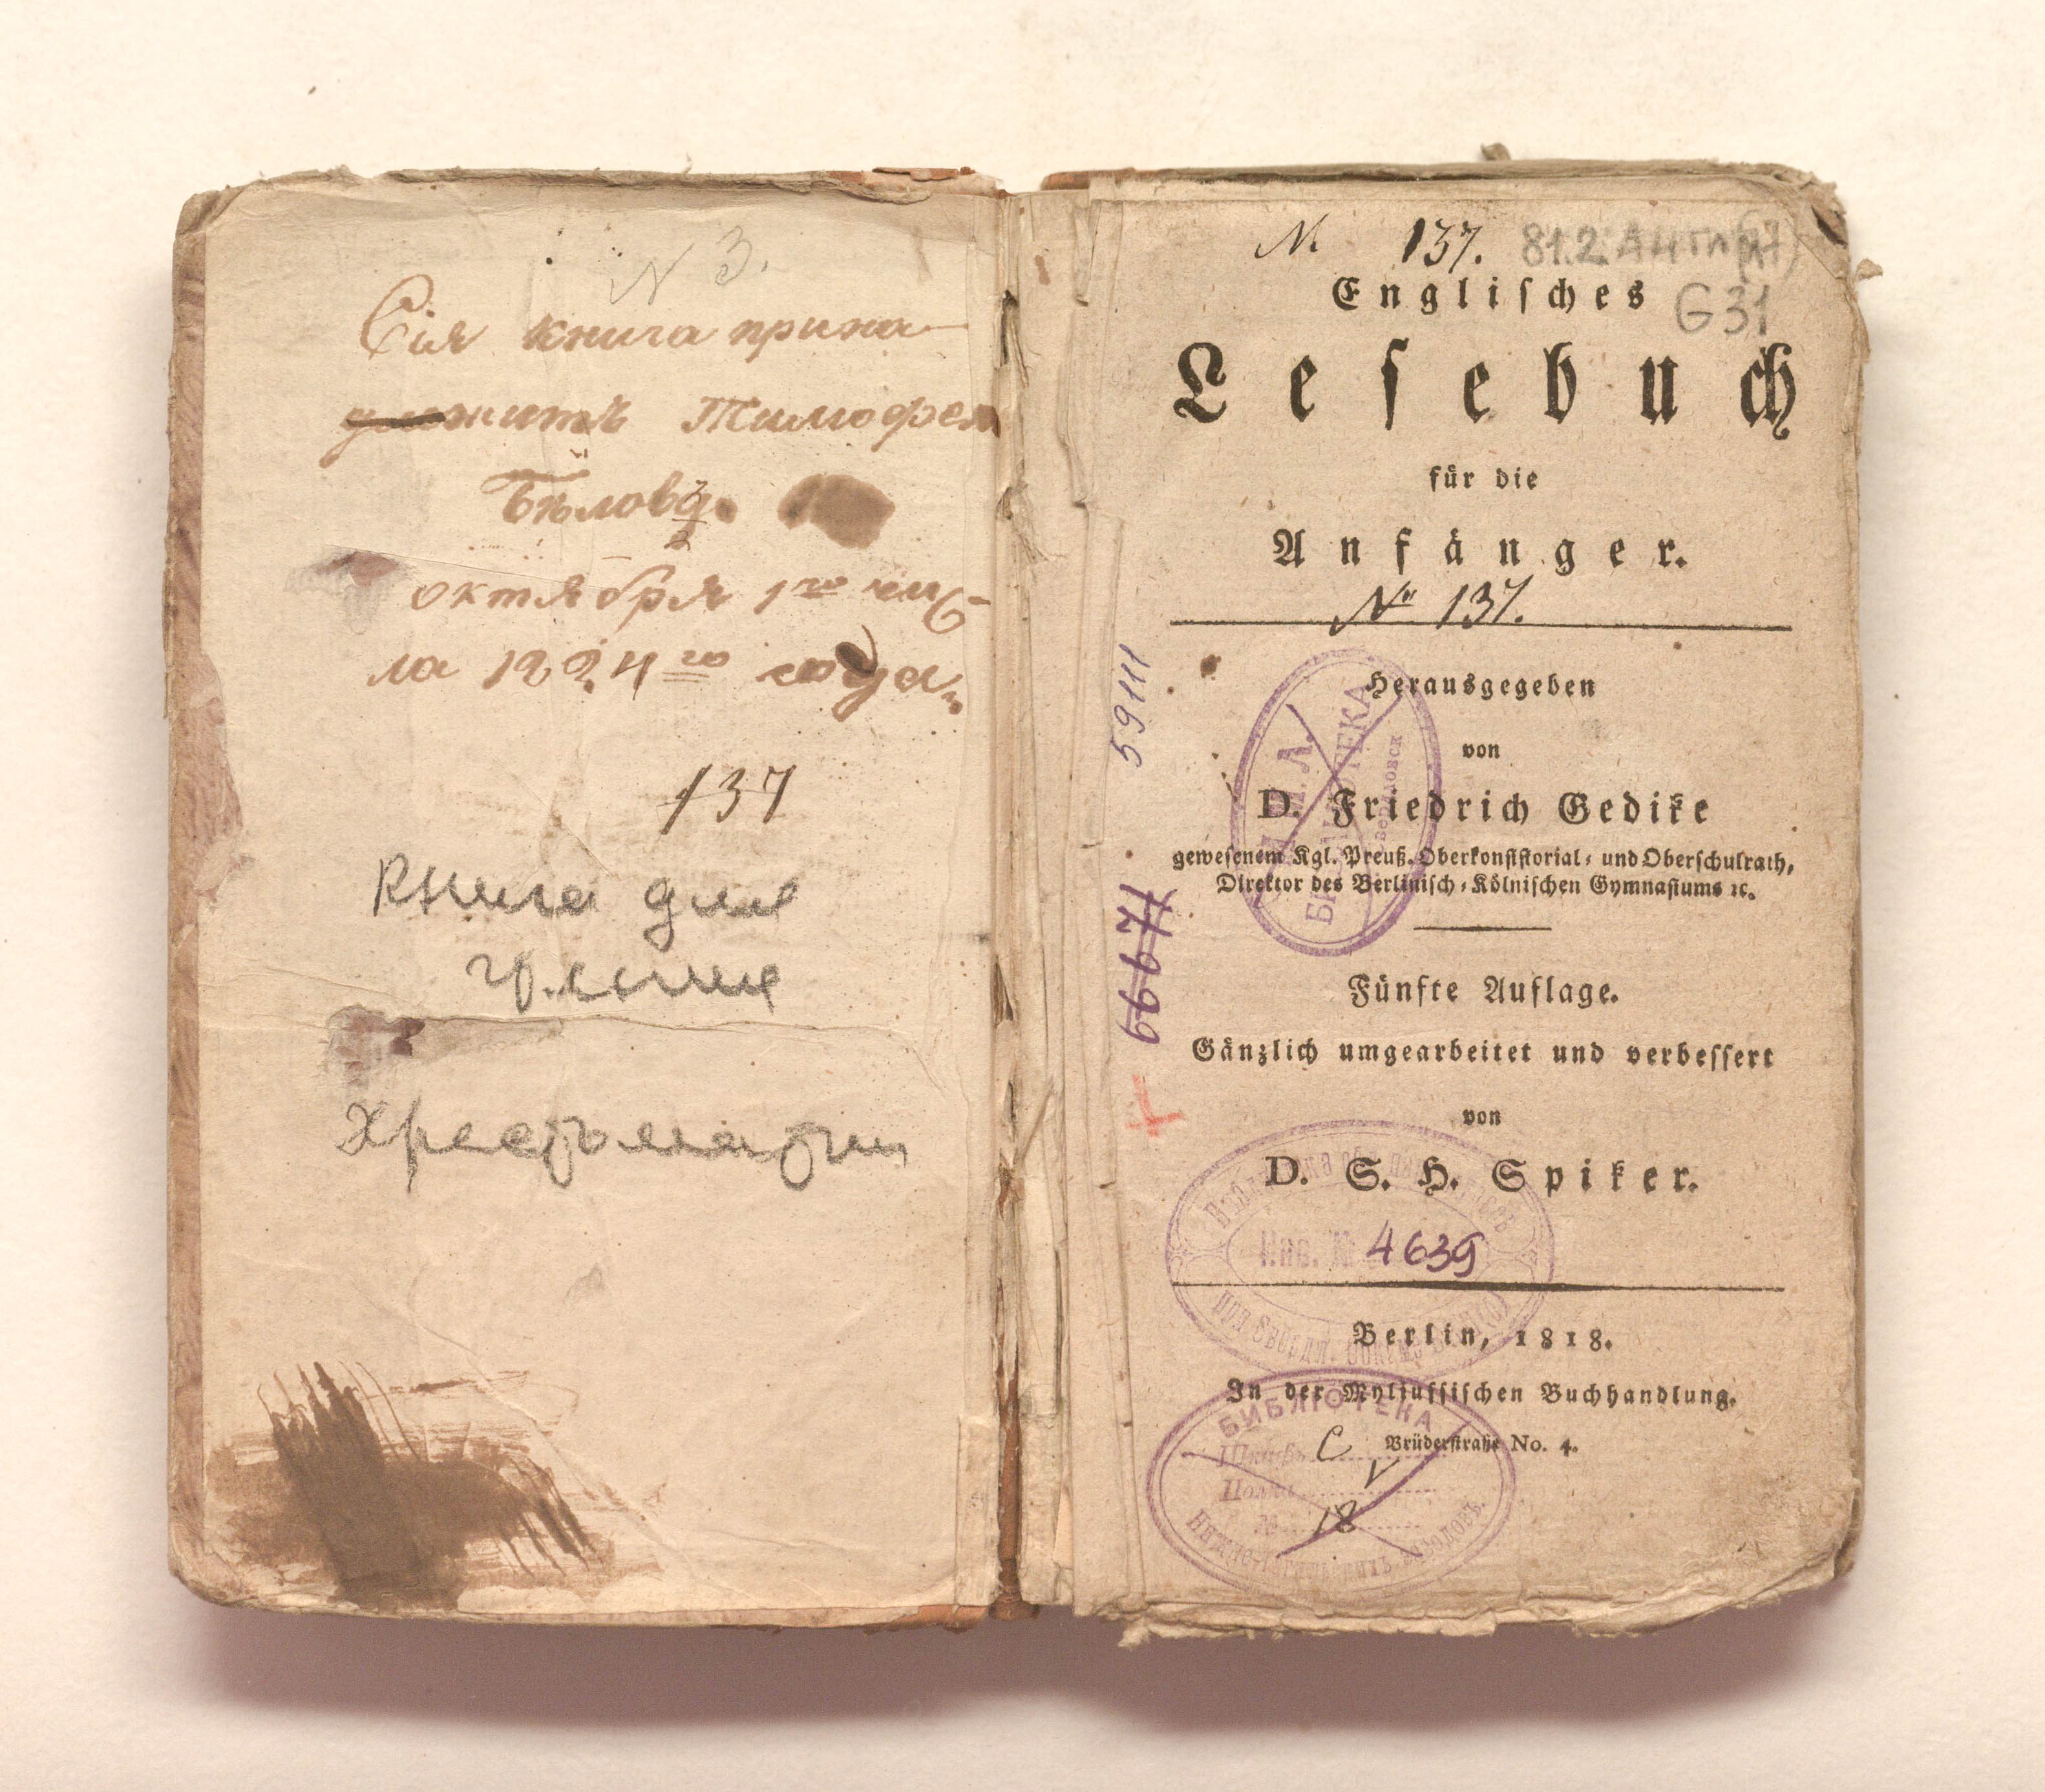 N 3.
Сія книга прина-
длежитъ Тимофея
Бѣлова.
октября 1го чис-
ла 1824го года.
137
Книга для
чтения
Хрестоматия
№ 137. 81.2 Англ(я7)
G31
Engliſches
Leſebuch
für die
Anfänger.
№ 137.
Herausgegeben
von
D. Friedrich Gedike
geweſenem Kgl. Preuß. Oberkonſiſtorial- und Oberſchulrath,
Direktor des Berliniſch-Kölniſchen Gymnaſiums ꝛc.
Fünfte Auflage.
Gänzlich umgearbeitet und verbeſſert
von
D. S. H. Spiker.
Berlin, 1818.
In der Myliuſſiſchen Buchhandlung.
Brüderſtraße No. 4.
59111
66671
БИБЛИОТЕКА
Инв. № 4639
БИБЛІОТЕКА
Шкафъ C
Полка V
№ 18